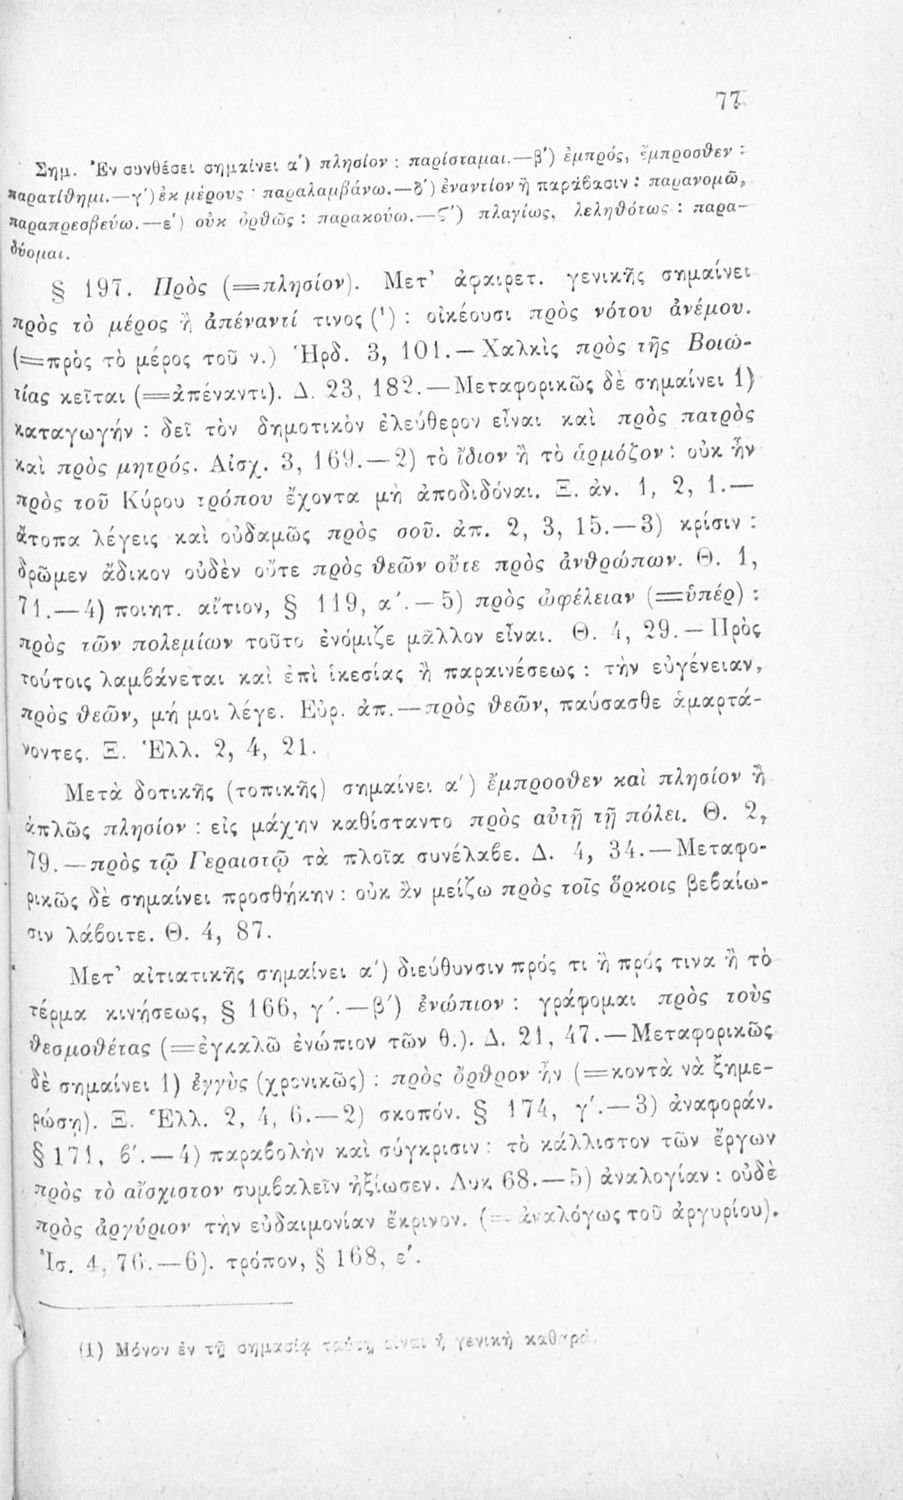 77
Σημ. Ἐν συνθέσει σημαίνει α΄) πλησίον : παρίσταμαι.—β΄) ἐμπρός, ἔμπροσθεν :
παρατίθημι.—γ΄) ἐκ μέρους : παραλαμβάνω.—δ΄) ἐναντίον ἢ παράβασιν : παρανομῶ,
παραπρεσβεύω.—ε΄) οὐκ ὀρθῶς : παρακούω.—Ϛ΄) πλαγίως, λεληθότως : παρα-
δύομαι.
§ 197. Πρὸς (=πλησίον). Μετ’ ἀφαιρετ. γενικῆς σημαίνει
πρὸς τὸ μέρος ἢ ἀπέναντί τινος (¹) : οἰκέουσι πρὸς νότου ἀνέμου.
(=πρὸς τὸ μέρος τοῦ ν.) Ἡρδ. 3, 101.—Χαλκὶς πρὸς τῆς Βοιω-
τίας κεῖται (=ἀπέναντι). Δ. 23, 182.—Μεταφορικῶς δὲ σημαίνει 1)
καταγωγήν : δεῖ τὸν δημοτικὸν ἐλεύθερον εἶναι καὶ πρὸς πατρὸς
καὶ πρὸς μητρός. Αἰσχ. 3, 169.—2) τὸ ἴδιον ἢ τὸ ἁρμόζον : οὐκ ἦν
πρὸς τοῦ Κύρου τρόπου ἔχοντα μὴ ἀποδιδόναι. Ξ. ἀν. 1, 2, 1.—
ἄτοπα λέγεις καὶ οὐδαμῶς πρὸς σοῦ. ἀπ. 2, 3, 15.—3) κρίσιν :
δρῶμεν ἄδικον οὐδὲν οὔτε πρὸς θεῶν οὔτε πρὸς ἀνθρώπων. Θ. 1,
71.—4) ποιητ. αἴτιον, § 119, α΄.—5) πρὸς ὠφέλειαν (=ὑπέρ) :
πρὸς τῶν πολεμίων τοῦτο ἐνόμιζε μᾶλλον εἶναι. Θ. 4, 29.—Πρὸς
τούτοις λαμβάνεται καὶ ἐπὶ ἱκεσίας ἢ παραινέσεως : τὴν εὐγένειαν,
πρὸς θεῶν, μή μοι λέγε. Εὐρ. ἀπ.—πρὸς θεῶν, παύσασθε ἁμαρτά-
νοντες. Ξ. Ἑλλ. 2, 4, 21.
Μετὰ δοτικῆς (τοπικῆς) σημαίνει α΄) ἔμπροσθεν καὶ πλησίον ἢ
ἁπλῶς πλησίον : εἰς μάχην καθίσταντο πρὸς αὐτῇ τῇ πόλει. Θ. 2,
79.—πρὸς τῷ Γεραιστῷ τὰ πλοῖα συνέλαβε. Δ. 4, 34.—Μεταφο-
ρικῶς δὲ σημαίνει προσθήκην : οὐκ ἂν μείζω πρὸς τοῖς ὅρκοις βεβαίω-
σιν λάβοιτε. Θ. 4, 87.
Μετ’ αἰτιατικῆς σημαίνει α΄) διεύθυνσιν πρός τι ἢ πρός τινα ἢ τὸ
τέρμα κινήσεως, § 166, γ΄.—β΄) ἐνώπιον : γράφομαι πρὸς τοὺς
θεσμοθέτας (=ἐγκαλῶ ἐνώπιον τῶν θ.). Δ. 21, 47.—Μεταφορικῶς
δὲ σημαίνει 1) ἐγγὺς (χρονικῶς) : πρὸς ὄρθρον ἦν (=κοντὰ νὰ ξημε-
ρώσῃ). Ξ. Ἑλλ. 2, 4, 6.—2) σκοπόν. § 174, γ΄.—3) ἀναφοράν.
§ 171, β΄.—4) παραβολὴν καὶ σύγκρισιν : τὸ κάλλιστον τῶν ἔργων
πρὸς τὸ αἴσχιστον συμβαλεῖν ἠξίωσεν. Λυκ. 68.—5) ἀναλογίαν : οὐδὲ
πρὸς ἀργύριον τὴν εὐδαιμονίαν ἔκρινον. (=ἀναλόγως τοῦ ἀργυρίου).
Ἰσ. 4, 76.—6). τρόπον, § 168, ε΄.
(1) Μόνον ἐν τῇ σημασίᾳ ταύτῃ εἶναι ἡ γενικὴ καθαρά.